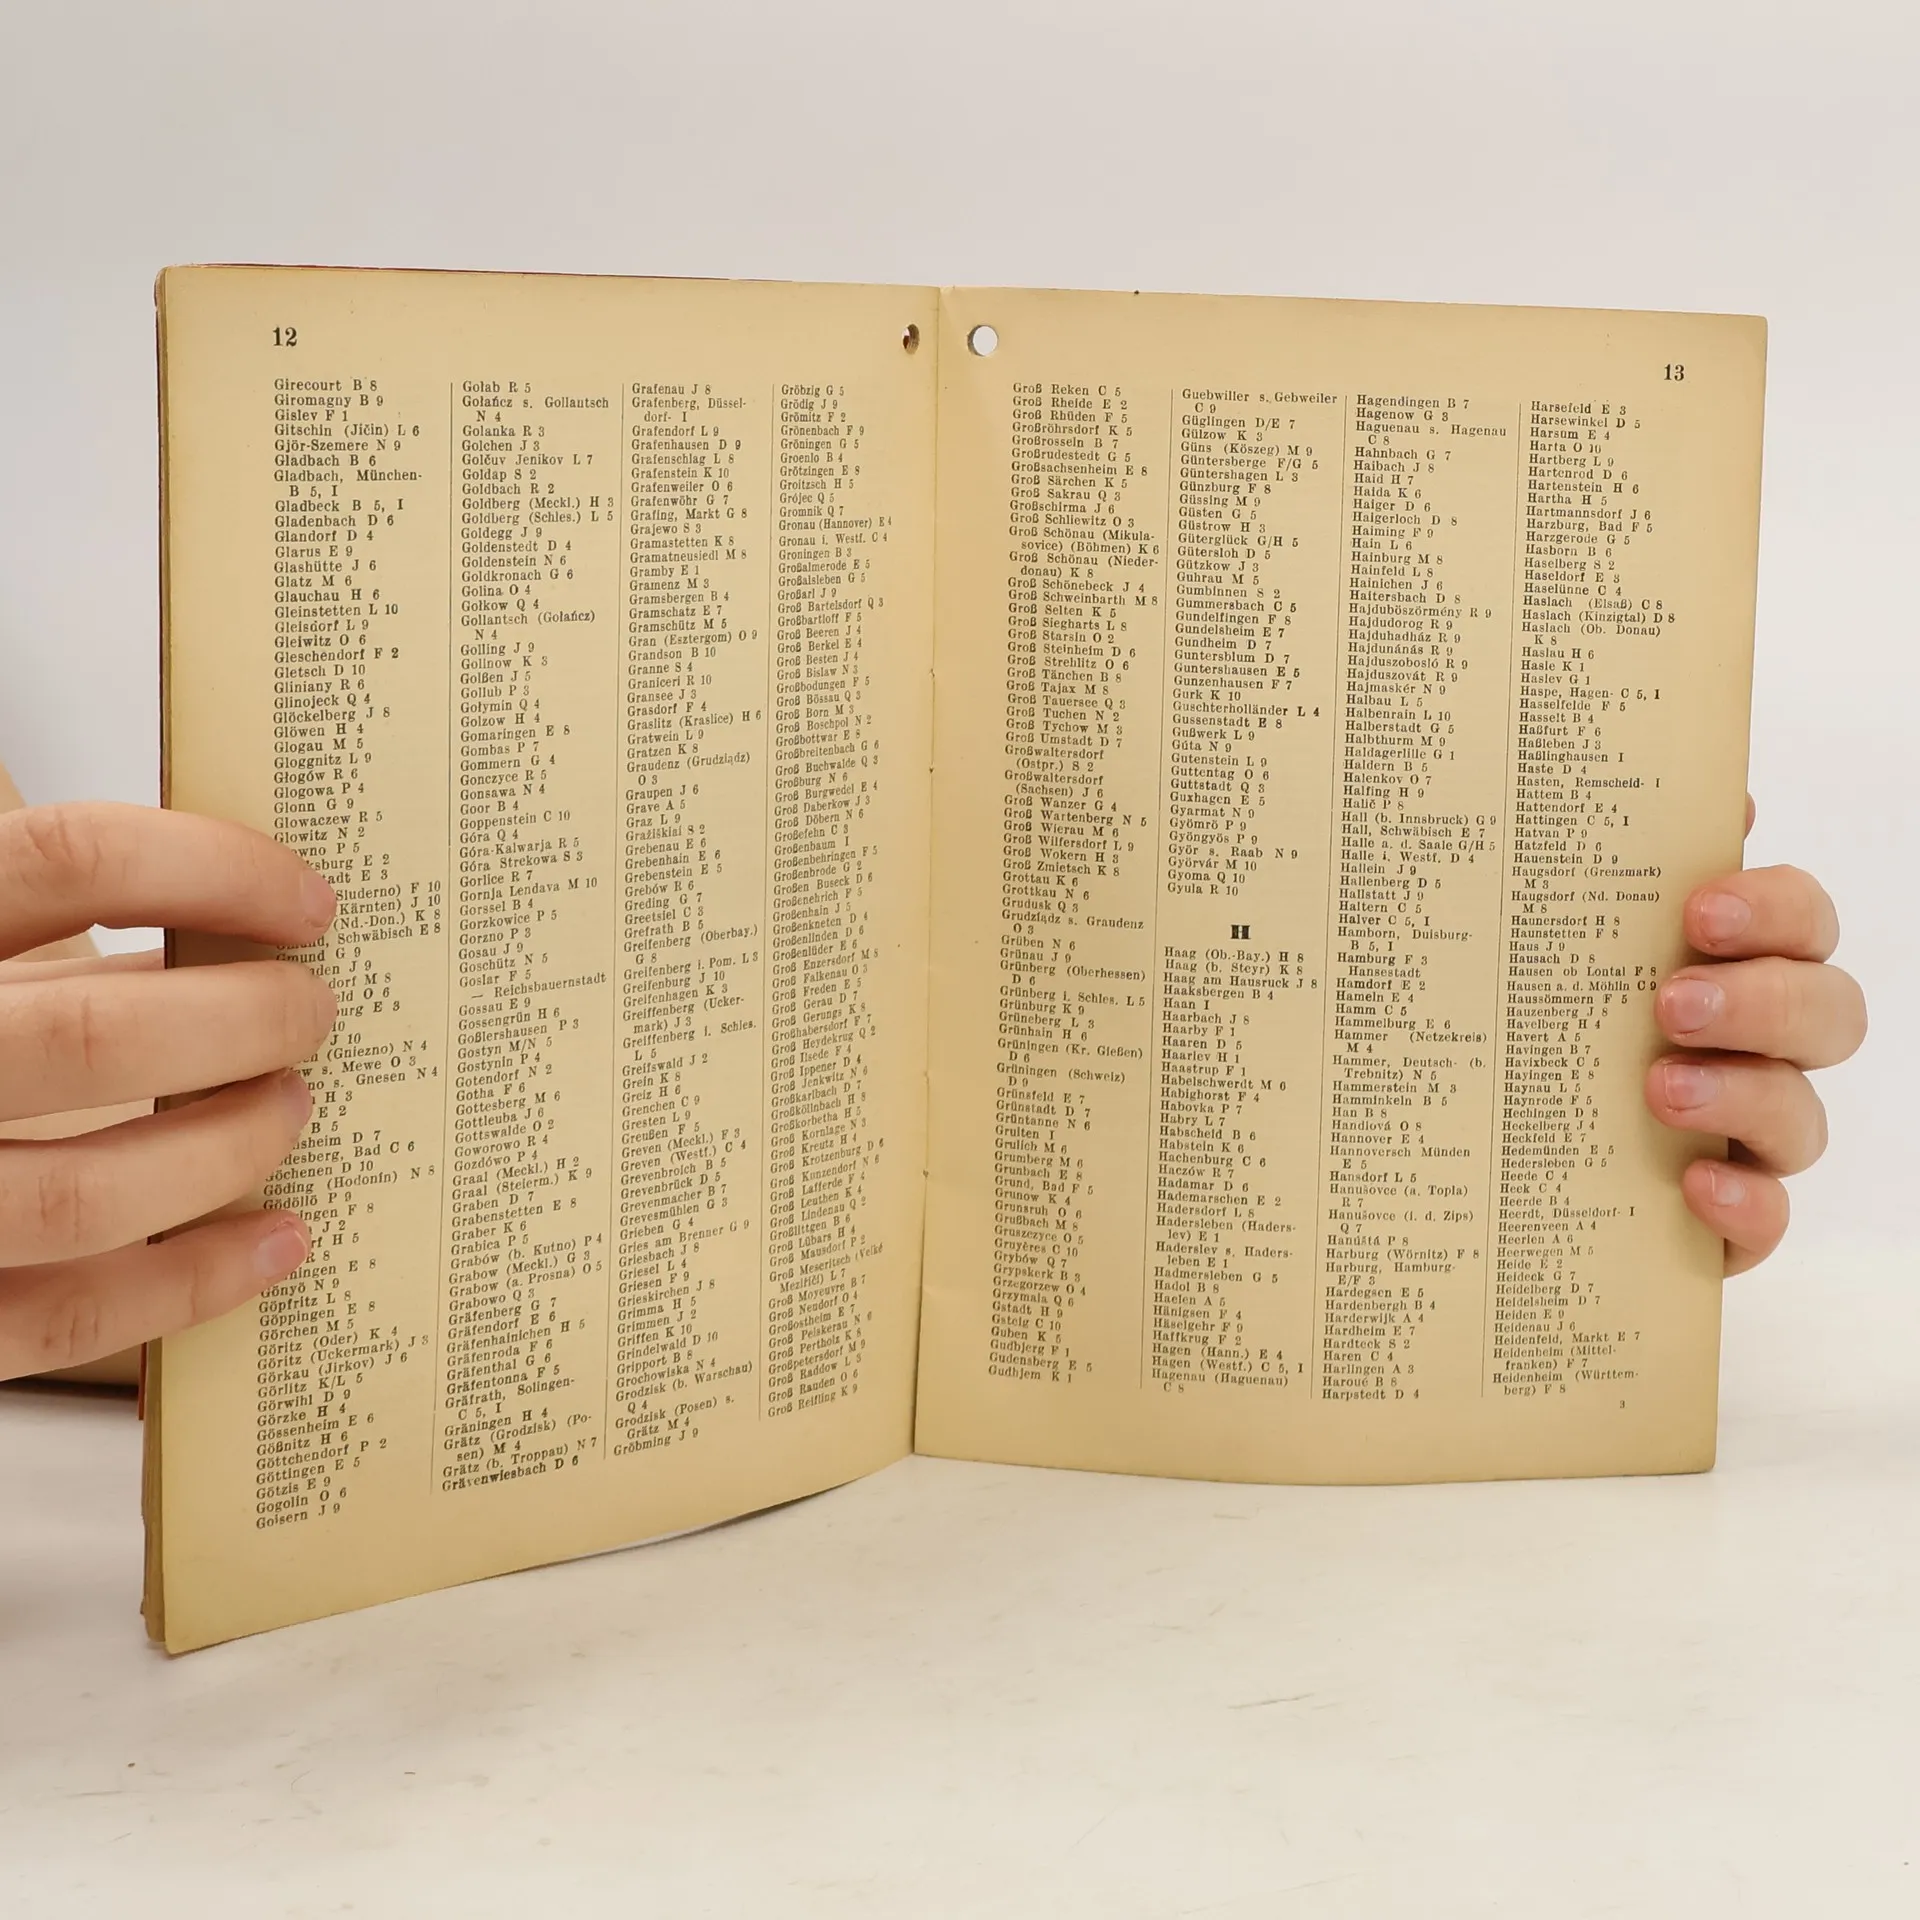 12
Girecourt B 8
Giromagny B 9
Gislev F 1
Gitschin (Jičin) L 6
Gjör-Szemere N 9
Gladbach B 6
Gladbach, München-
B 5, I
Gladbeck B 5, I
Gladenbach D 6
Glandorf D 4
Glarus E 9
Glashütte J 6
Glatz M 6
Glauchau H 6
Gleinstetten L 10
Gleisdorf L 9
Gleiwitz O 6
Gleschendorf F 2
Gletsch D 10
Gliniany R 6
Glinojeck Q 4
Glöckelberg J 8
Glöwen H 4
Glogau M 5
Gloggnitz L 9
Głogów R 6
Glogowa P 4
Glonn G 9
Glowaczew R 5
Glowitz N 2
owno P 5
ksburg E 2
tadt E 3
Sluderno) F 10
Kärnten) J 10
(Nd.-Don.) K 8
Gmünd, Schwäbisch E 8
Gmund G 9
den J 9
dorf M 8
eld O 6
burg E 3
10
J 10
n (Gniezno) N 4
ew s. Mewe O 3
no s. Gnesen N 4
H 3
E 2
B 5
sheim D 7
desberg, Bad C 6
Göchenen D 10
Göding (Hodonín) N 8
Gödöllö P 9
ringen F 8
J 2
rf H 5
R 8
ningen E 8
Gönyö N 9
Göpfritz L 8
Göppingen E 8
Görchen M 5
Göritz (Oder) K 4
Göritz (Uckermark) J 3
Görkau (Jirkov) J 6
Görlitz K/L 5
Görwihl D 9
Görzke H 4
Gössenheim E 6
Gößnitz H 6
Göttchendorf P 2
Göttingen E 5
Götzis E 9
Gogolin O 6
Goisern J 9
Golab R 5
Gołańcz s. Gollantsch
N 4
Golanka R 3
Golchen J 3
Golčuv Jenikov L 7
Goldap S 2
Goldbach R 2
Goldberg (Meckl.) H 3
Goldberg (Schles.) L 5
Goldegg J 9
Goldenstedt D 4
Goldenstein N 6
Goldkronach G 6
Golina O 4
Golkow Q 4
Gollantsch (Gołańcz)
N 4
Golling J 9
Gollnow K 3
Golßen J 5
Gollub P 3
Gołymin Q 4
Golzow H 4
Gomaringen E 8
Gombas P 7
Gommern G 4
Gonczyce R 5
Gonsawa N 4
Goor B 4
Goppenstein C 10
Góra Q 4
Góra-Kalwarja R 5
Góra Strekowa S 3
Gorlice R 7
Gornja Lendava M 10
Gorssel B 4
Gorzkowice P 5
Gorzno P 3
Gosau J 9
Goschütz N 5
Goslar F 5
— Reichsbauernstadt
Gossau E 9
Gossengrün H 6
Goßlershausen P 3
Gostyn M/N 5
Gostynin P 4
Gotendorf N 2
Gotha F 6
Gottesberg M 6
Gottleuba J 6
Gottswalde O 2
Goworowo R 4
Gozdówo P 4
Graal (Meckl.) H 2
Graal (Steierm.) K 9
Graben D 7
Grabenstetten E 8
Graber K 6
Grabica P 5
Grabów (b. Kutno) P 4
Grabow (Meckl.) G 3
Grabow (a. Prosna) O 5
Grabowo Q 3
Gräfenberg G 7
Gräfendorf E 6
Gräfenhainichen H 5
Gräfenroda F 6
Gräfenthal G 6
Gräfentonna F 5
Gräfrath, Solingen-
C 5, I
Gräningen H 4
Grätz (Grodzisk) (Po-
sen) M 4
Grätz (b. Troppau) N 7
Grävenwiesbach D 6
Grafenau J 8
Grafenberg, Düssel-
dorf- I
Grafendorf L 9
Grafenhausen D 9
Grafenschlag L 8
Grafenstein K 10
Grafenweiler O 6
Grafenwöhr G 7
Grafing, Markt G 8
Grajewo S 3
Gramastetten K 8
Gramatneusiedl M 8
Gramby E 1
Gramenz M 3
Gramsbergen B 4
Gramschatz E 7
Gramschütz M 5
Gran (Esztergom) O 9
Grandson B 10
Granne S 4
Graniceri R 10
Gransee J 3
Grasdorf F 4
Graslitz (Kraslice) H 6
Gratwein L 9
Gratzen K 8
Graudenz (Grudziądz)
O 3
Graupen J 6
Grave A 5
Graz L 9
Gražiškiai S 2
Grebenau E 6
Grebenhain E 6
Grebenstein E 5
Grebów R 6
Greding G 7
Greetsiel C 3
Grefrath B 5
Greifenberg (Oberbay.)
G 8
Greifenberg i. Pom. L 3
Greifenburg J 10
Greifenhagen K 3
Greiffenberg (Ucker-
mark) J 3
Greiffenberg i. Schles.
L 5
Greifswald J 2
Grein K 8
Greiz H 6
Grenchen C 9
Gresten L 9
Greußen F 5
Greven (Meckl.) F 3
Greven (Westf.) C 4
Grevenbroich B 5
Grevenbrück D 5
Grevenmacher B 7
Grevesmühlen G 3
Grieben G 4
Gries am Brenner G 9
Griesbach J 8
Griesel L 4
Griesen F 9
Grieskirchen J 8
Grimma H 5
Grimmen J 2
Griffen K 10
Grindelwald D 10
Gripport B 8
Grochowiska N 4
Grodzisk (b. Warschau)
Q 4
Grodzisk (Posen) s.
Grätz M 4
Gröbming J 9
Gröbzig G 5
Grödig J 9
Grömitz F 2
Grönenbach F 9
Gröningen G 5
Groenlo B 4
Grötzingen E 8
Groitzsch H 5
Grójec Q 5
Gromnik Q 7
Gronau (Hannover) E 4
Gronau i. Westf. C 4
Groningen B 3
Großalmerode E 5
Großalsleben G 5
Großarl J 9
Groß Bartelsdorf Q 3
Großbartloff F 5
Groß Beeren J 4
Groß Berkel E 4
Groß Besten J 4
Groß Bislaw N 3
Großbodungen F 5
Groß Bössau Q 3
Groß Born M 3
Groß Boschpol N 2
Großbottwar E 8
Großbreitenbach G 6
Groß Buchwalde Q 3
Großburg N 6
Groß Burgwedel E 4
Groß Daberkow J 3
Groß Döbern N 6
Großefehn C 3
Großenbaum I
Großenbehringen F 5
Großenbrode G 2
Großen Buseck D 6
Großenehrich F 5
Großenhain J 5
Großenkneten D 4
Großenlinden D 6
Großenlüder E 6
Groß Enzersdorf M 8
Groß Falkenau O 3
Groß Freden E 5
Groß Gerau D 7
Groß Gerungs K 8
Großhabersdorf F 7
Groß Heydekrug Q 2
Groß Ilsede F 4
Groß Ippener D 4
Groß Jenkwitz N 6
Großkarlbach D 7
Großköllnbach H 8
Großkorbetha H 5
Groß Kornlage N 3
Groß Kreutz H 4
Groß Krotzenburg D 6
Groß Kunzendorf N 6
Groß Lafferde F 4
Groß Leuthen K 4
Groß Lindenau Q 2
Großlittgen B 6
Groß Lübars H 4
Groß Mausdorf P 2
Groß Meseritsch (Velké
Meziříčí) L 7
Groß Moyeuvre B 7
Groß Neudorf O 4
Großostheim E 7
Groß Peiskerau N 6
Groß Pertholz K 8
Großpetersdorf M 9
Groß Raddow L 3
Groß Randen O 6
Groß Reifling K 9
13
Groß Reken C 5
Groß Rheide E 2
Groß Rhüden F 5
Großröhrsdorf K 5
Großrosseln B 7
Großrudestedt G 5
Großsachsenheim E 8
Groß Särchen K 5
Groß Sakrau Q 3
Großschirma J 6
Groß Schliewitz O 3
Groß Schönau (Mikula-
sovice) (Böhmen) K 6
Groß Schönau (Nieder-
donau) K 8
Groß Schönebeck J 4
Groß Schweinbarth M 8
Groß Selten K 5
Groß Siegharts L 8
Groß Starsin O 2
Groß Steinheim D 6
Groß Strehlitz O 6
Groß Tänchen B 8
Groß Tajax M 8
Groß Tauersee Q 3
Groß Tuchen N 2
Groß Tychow M 3
Groß Umstadt D 7
Großwaltersdorf
(Ostpr.) S 2
Großwaltersdorf
(Sachsen) J 6
Groß Wanzer G 4
Groß Wartenberg N 5
Groß Wierau M 6
Groß Wilfersdorf L 9
Groß Wokern H 3
Groß Zmietsch K 8
Grottau K 6
Grottkau N 6
Grudusk Q 3
Grudziądz s. Graudenz
O 3
Grüben N 6
Grünau J 9
Grünberg (Oberhessen)
D 6
Grünberg i. Schles. L 5
Grünburg K 9
Grüneberg L 3
Grünhain H 6
Grüningen (Kr. Gießen)
D 6
Grüningen (Schweiz)
D 9
Grünsfeld E 7
Grünstadt D 7
Grüntanne N 6
Gruiten I
Grulich M 6
Grumberg M 6
Grunbach E 8
Grund, Bad F 5
Grunow K 4
Grunsruh O 6
Grußbach M 8
Gruszezyce O 5
Gruyères C 10
Grybów Q 7
Grypskerk B 3
Grzegorzew O 4
Grzymala Q 6
Gstadt H 9
Gsteig C 10
Guben K 5
Gudbjerg F 1
Gudensberg E 5
Gudhjem K 1
Guebwiller s. Gebweiler
C 9
Güglingen D/E 7
Gülzow K 3
Güns (Köszeg) M 9
Güntersberge F/G 5
Güntershagen L 3
Günzburg F 8
Güssing M 9
Güsten G 5
Güstrow H 3
Güterglück G/H 5
Gütersloh D 5
Gützkow J 3
Guhrau M 5
Gumbinnen S 2
Gummersbach C 5
Gundelfingen F 8
Gundelsheim E 7
Gundheim D 7
Guntersblum D 7
Guntershausen E 5
Gunzenhausen F 7
Gurk K 10
Guschterholländer L 4
Gussenstadt E 8
Gußwerk L 9
Gúta N 9
Gutenstein L 9
Guttentag O 6
Guttstadt Q 3
Guxhagen E 5
Gyarmat N 9
Gyömrö P 9
Gyöngyös P 9
Györ s. Raab N 9
Györvár M 10
Gyoma Q 10
Gyula R 10
H
Haag (Ob.-Bay.) H 8
Haag (b. Steyr) K 8
Haag am Hausruck J 8
Haaksbergen B 4
Haan I
Haarbach J 8
Haarby F 1
Haaren D 5
Haarlev H 1
Haastrup F 1
Habelschwerdt M 6
Habighorst F 4
Habovka P 7
Habry L 7
Habscheid B 6
Habstein K 6
Hachenburg C 6
Haczów R 7
Hadamar D 6
Hademarschen E 2
Hadersdorf L 8
Hadersleben (Haders-
lev) E 1
Haderslev s. Haders-
leben E 1
Hadmersleben G 5
Hadol B 8
Haelen A 5
Hänigsen F 4
Häselgehr F 9
Haffkrug F 2
Hagen (Hann.) E 4
Hagen (Westf.) C 5, I
Hagenau (Haguenau)
C 8
Hagendingen B 7
Hagenow G 3
Haguenau s. Hagenau
C 8
Hahnbach G 7
Haibach J 8
Haid H 7
Haida K 6
Haiger D 6
Haigerloch D 8
Haiming F 9
Hain L 6
Hainburg M 8
Hainfeld L 8
Hainichen J 6
Haitersbach D 8
Hajduböszörmény R 9
Hajdudorog R 9
Hajduhadház R 9
Hajdunánás R 9
Hajduszobosló R 9
Hajduszovát R 9
Hajmaskér N 9
Halbau L 5
Halbenrain L 10
Halberstadt G 5
Halbthurm M 9
Haldagerlille G 1
Haldern B 5
Halenkov O 7
Halfing H 9
Halič P 8
Hall (b. Innsbruck) G 9
Hall, Schwäbisch E 7
Halle a. d. Saale G/H 5
Halle i. Westf. D 4
Hallein J 9
Hallenberg D 5
Hallstatt J 9
Haltern C 5
Halver C 5, I
Hamborn, Duisburg-
B 5, I
Hamburg F 3
Hansestadt
Hamdorf E 2
Hameln E 4
Hamm C 5
Hammelburg E 6
Hammer (Netzekreis)
M 4
Hammer, Deutsch- (b.
Trebnitz) N 5
Hammerstein M 3
Hamminkeln B 5
Han B 8
Handlová O 8
Hannover E 4
Hannoversch Münden
E 5
Hansdorf L 5
Hanušovce (a. Topla)
R 7
Hanušovce (i. d. Zips)
Q 7
Hanúštá P 8
Harburg (Wörnitz) F 8
Harburg, Hamburg-
E/F 3
Hardegsen E 5
Hardenbergh B 4
Harderwijk A 4
Hardheim E 7
Hardteck S 2
Haren C 4
Harlingen A 3
Haroué B 8
Harpstedt D 4
Harsefeld E 3
Harsewinkel D 5
Harsum E 4
Harta O 10
Hartberg L 9
Hartenrod D 6
Hartenstein H 6
Hartha H 5
Hartmannsdorf J 6
Harzburg, Bad F 5
Harzgerode G 5
Hasborn B 6
Haselberg S 2
Haseldorf E 3
Haselünne C 4
Haslach (Elsaß) C 8
Haslach (Kinzigtal) D 8
Haslach (Ob. Donau)
K 8
Haslau H 6
Hasle K 1
Haslev G 1
Haspe, Hagen- C 5, I
Hasselfelde F 5
Hasselt B 4
Haßfurt F 6
Haßleben J 3
Haßlinghausen I
Haste D 4
Hasten, Remscheid- I
Hattem B 4
Hattendorf E 4
Hattingen C 5, I
Hatvan P 9
Hatzfeld D 6
Hauenstein D 9
Haugsdorf (Grenzmark)
M 3
Haugsdorf (Nd. Donau)
M 8
Haunersdorf H 8
Haunstetten F 8
Haus J 9
Hausach D 8
Hausen ob Lontal F 8
Hausen a. d. Möhlin C 9
Haussömmern F 5
Hauzenberg J 8
Havelberg H 4
Havert A 5
Havingen B 7
Havixbeck C 5
Hayingen E 8
Haynau L 5
Haynrode F 5
Hechingen D 8
Heckelberg J 4
Heckfeld E 7
Hedemünden E 5
Hedersleben G 5
Heede C 4
Heek C 4
Heerde B 4
Heerdt, Düsseldorf- I
Heerenveen A 4
Heerlen A 6
Heerwegen M 5
Heide E 2
Heideck G 7
Heidelberg D 7
Heidelsheim D 7
Heiden E 9
Heidenau J 6
Heidenfeld, Markt E 7
Heidenheim (Mittel-
franken) F 7
Heidenheim (Württem-
berg) F 8
3